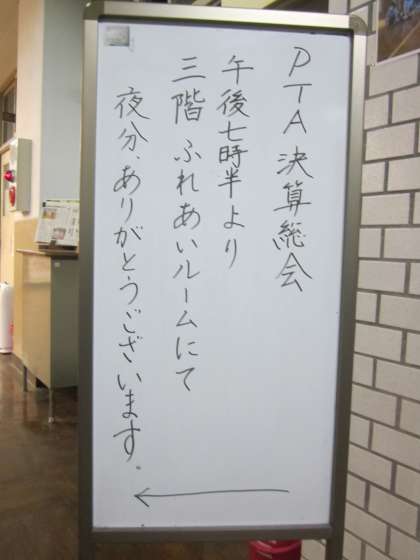 PTA決算総会
午後七時半より
三階 ふれあいルームにて
夜分、ありがとうございます。